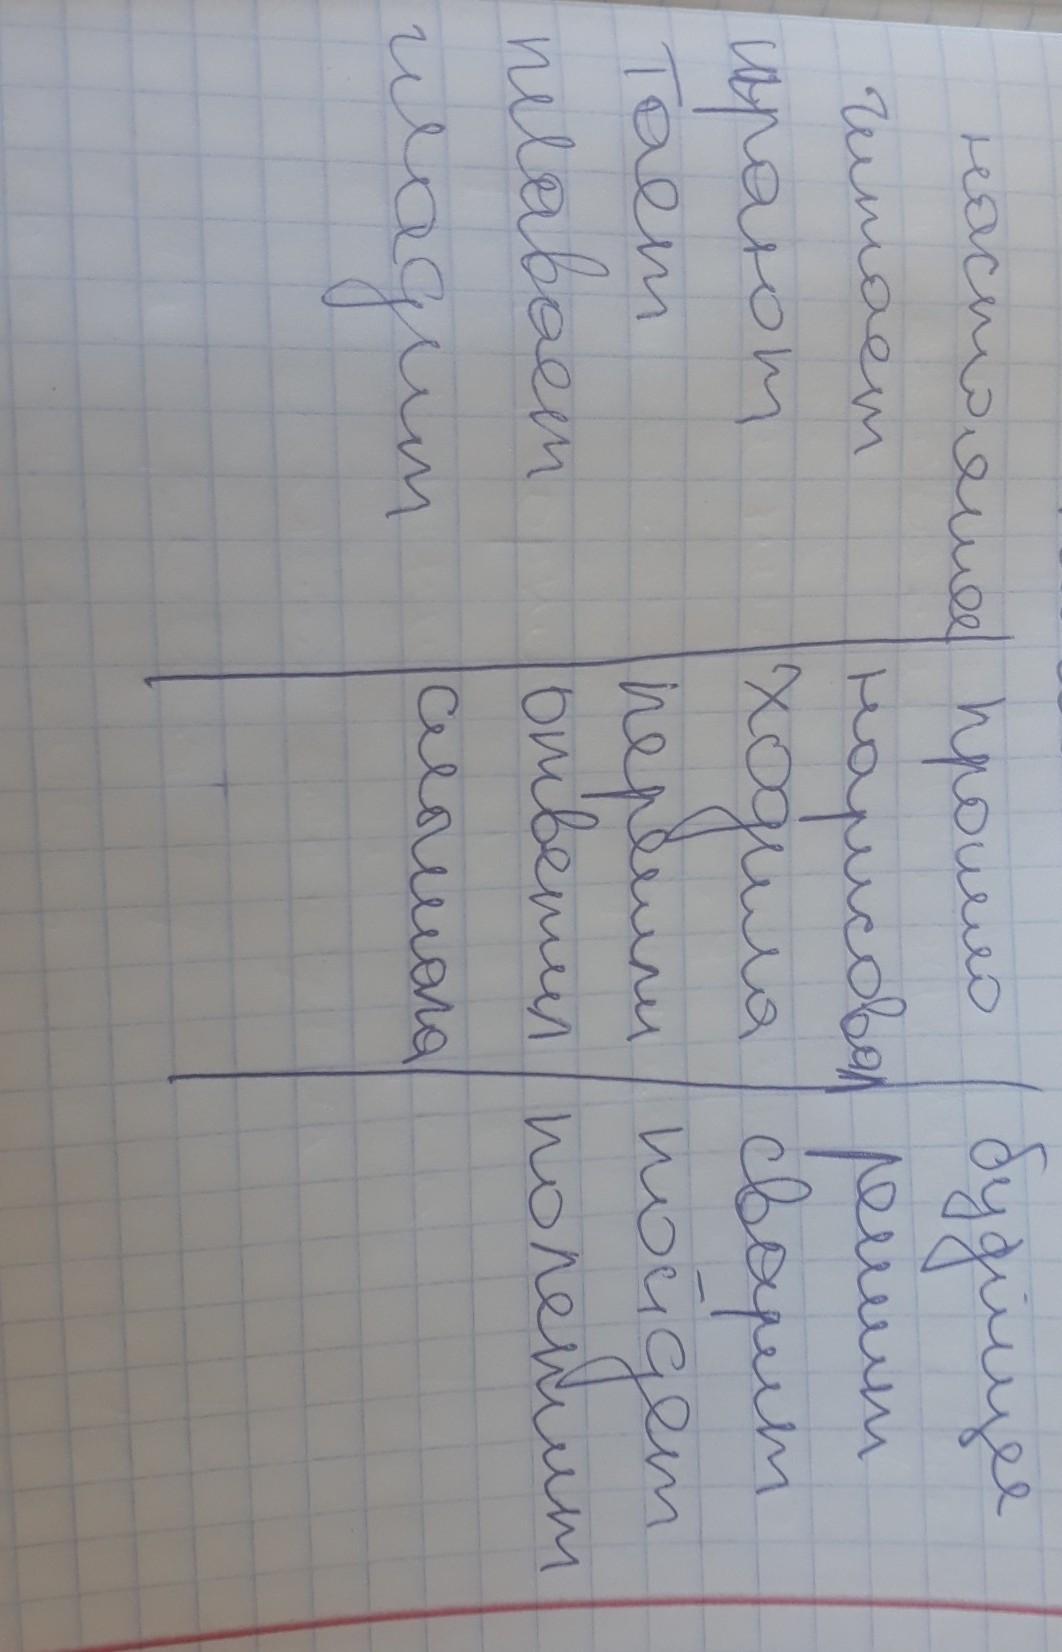 настоящие прошло будіщее
читает нарисовал решит
играют ходила сварит
тает перешли поїдет
плавает ответил полетит
гладит слышала